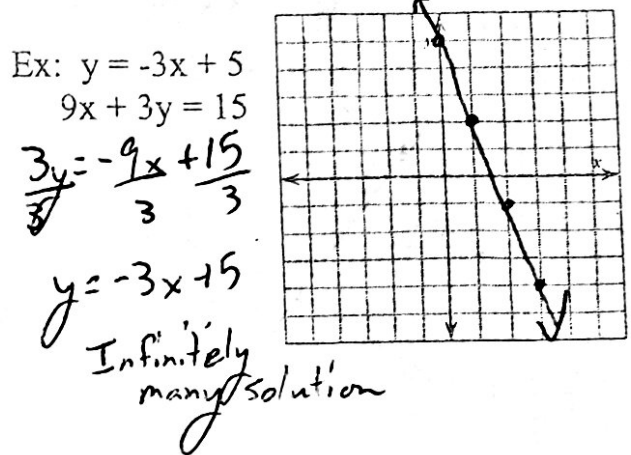 Ex: y = -3x + 5
9x + 3y = 15
3y = -9x + 15
3 3 3
y = -3x + 5
Infinitely
many solution
x